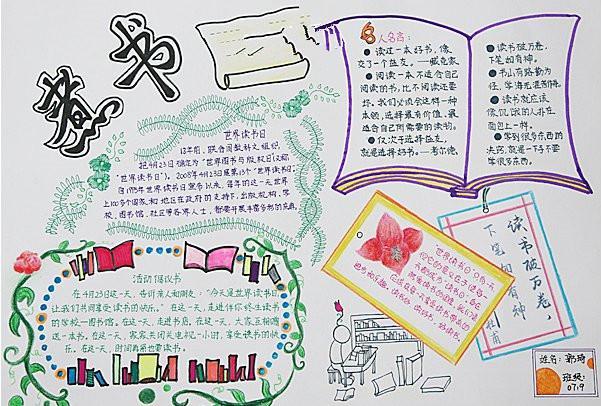 煮书
世界读书日
13年前，联合国教科文组织，
把4月23日确定为“世界图书与版权日(又称
“世界读书日”)。2008年4月23日是第13个“世界读书日”。
自1995年世界读书日宣布以来，每年的这一天世界
上100多个国家和地区在政府的支持下，出版机构、学
校、图书馆、社区等各界人士，都要开展丰富多彩的庆典
名人名言：
●阅读一本不适合自己
阅读的书，比不阅读还要
坏。我们必须会这样一种
本领，选择最有价值、最
适合自己所需要的读物。
●仅次于选择益友，
就是选择好书。——考尔德
●读书破万卷，
下笔如有神。
●书山有路勤为
径，学海无涯苦作舟
●读书就应该
像饥饿的人扑在
面包上一样。
●学到很多东西的
决窍，就是一下子不要
学很多东西。
活动倡议书
在4月23日这一天，告诉亲人和朋友：“今天是世界读书日，
让我们共同享受阅读的快乐。”在这一天，走进伴你终生读书
的学校—图书馆。在这一天，走进书店。在这一天，大家互相赠
送一本书。在这一天，家家关闭电视一小时，享受读书的快
乐。在这一天，时间再紧也要读书。
读书破万卷，
下笔如有神
杜甫
姓名：郭琦
班级：
0719